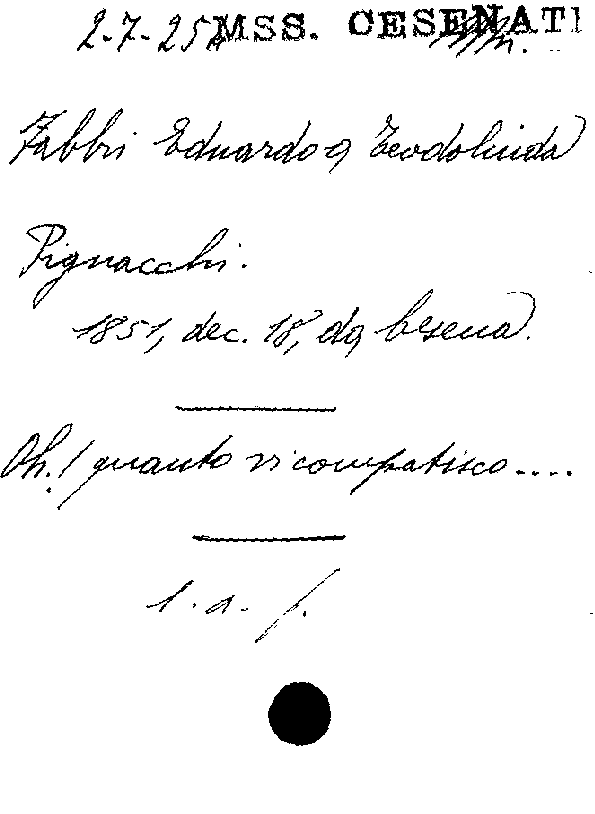 2-7-25 MSS. CESENATI
Fabbri Eduardo a Teodolinda
Pignacchi.
1851, dec. 18, da Cesena.
Oh! quanto vi compatisco....
l. a. f.